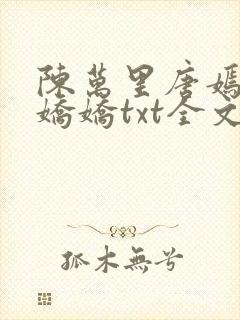 陳萬里唐嫣
嬌嬌txt全文
孤木無兮